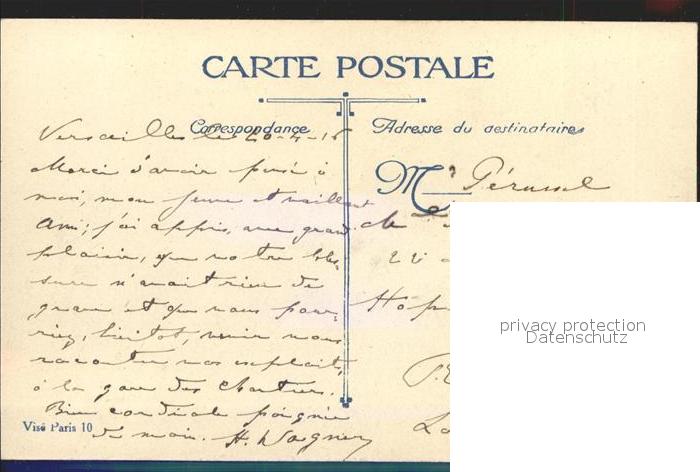 CARTE POSTALE
Correspondance
Adresse du destinataire
Versailles le 20-4-16
Merci d'avoir pensé à
moi, mon jeune et vaillant
Ami; j'ai appris, avec grand
plaisir, que votre bles-
sure n'avait rien de
grave et que vous pour-
riez, bientôt, venir nous
raconter vos exploits,
à la gare des Chantiers.
Bien cordiale poignée
de main. H. Wagner
Mr
Hôp
Visé Paris 10
privacy protection
Datenschutz